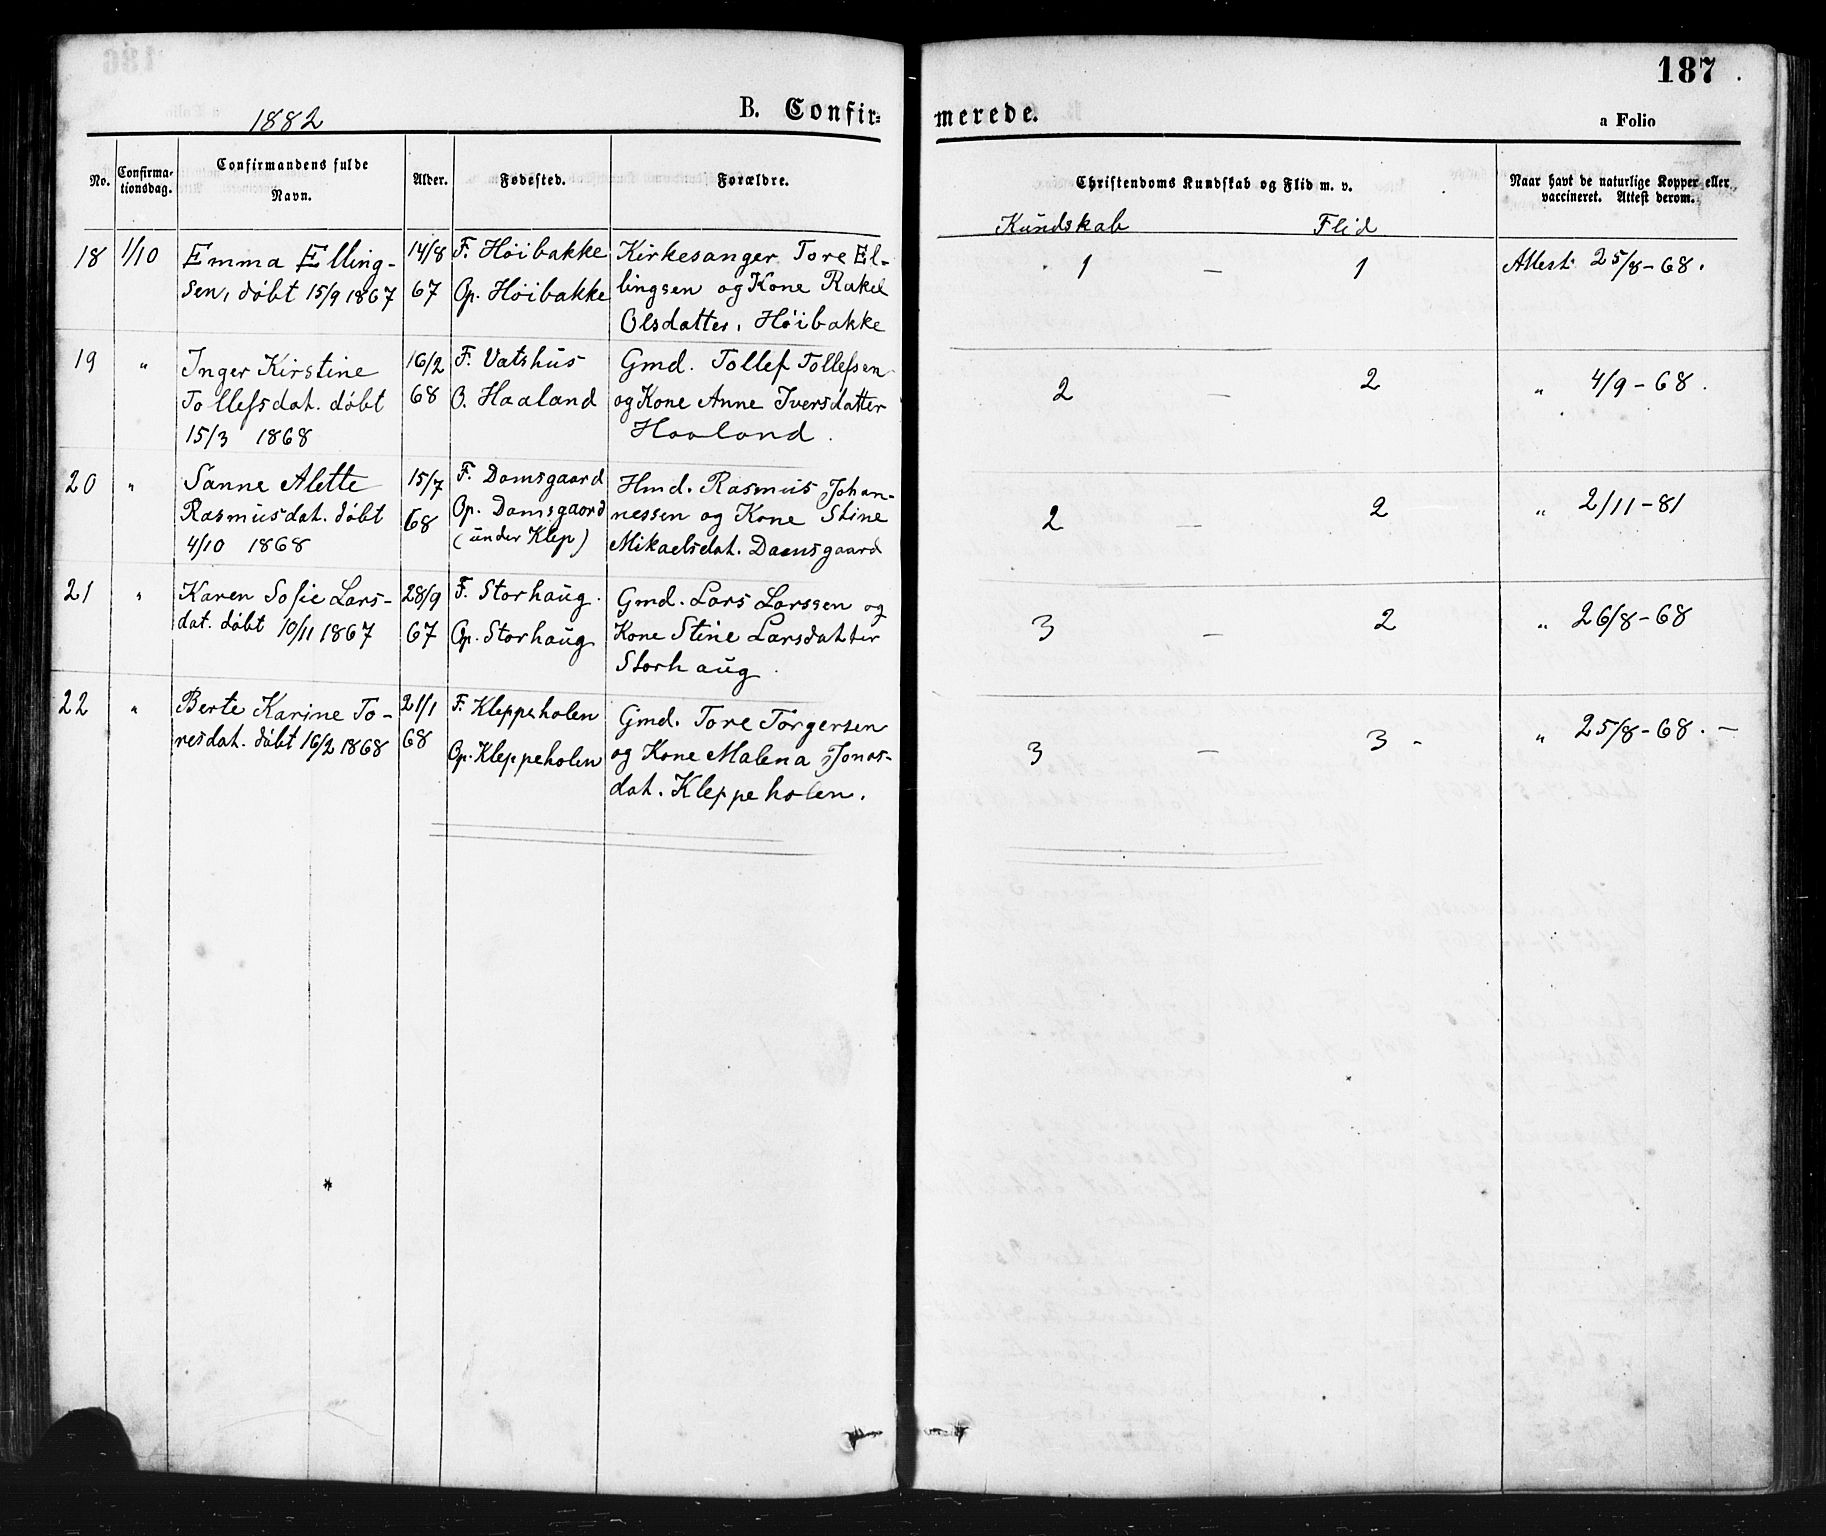 187
1882 B. Confir= merede. a Folio
No.
Confirma-
tionsdag.
Confirmandens fulde
Navn.
Alder.
Fødested.
Forældre.
Christendoms Kundskab og Flid m. v.
Naar havt de naturlige Kopper eller
vaccineret. Attest derom.
Kundskab Flid
18 1/10 Emma Elling- 14/8 F. Høibakke Kirkesanger Tore El- 1 — 1 Attest 25/8-68.
sen, døbt 15/9 1867 67 Op. Høibakke lingsen og Kone Rakel
Olsdatter, Høibakke
19 " Inger Kirstine 16/2 F. Vatshus Gmd. Tollef Tollefsen 2 — 2 " 4/9-68.
Tollefsdat. døbt 68 O. Haaland og Kone Anne Iversdatter
15/3 1868 Haaland.
20 " Sanne Alette 15/7 F. Damsgaard Hmd. Rasmus Johan- 2 — 2 " 2/11-81
Rasmusdat. døbt 68 Op. Damsgaard nessen og Kone Stine
4/10 1868 (under Klep) Mikaelsdat. Damsgaard
21 " Karen Sofie Lars- 28/9 F. Storhaug. Gmd. Lars Larssen og 3 — 2 " 26/8-68
dat. døbt 10/11 1867 67 Op. Storhaug Kone Stine Larsdatter
Storhaug.
22 " Berte Karine To- 21/1 F. Kleppeholen Gmd. Tore Torgersen 3 — 3 - " 25/8-68. —
resdat. døbt 16/2 1868 68 Op. Kleppeholen og Kone Malena Jonas-
dat. Kleppeholen.